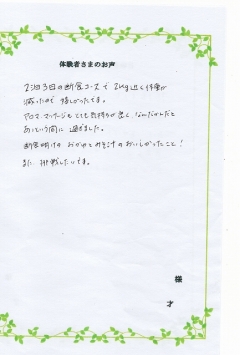 体験者さまのお声
2泊3日の断食コースで2kg近く体重が
減ったので嬉しかったです。
アロママッサージもとても気持ちが良く、なんだかんだと
あっという間に過ぎました。
断食明けのおかゆとみそ汁のおいしかったこと!
また挑戦したいです。
様
才